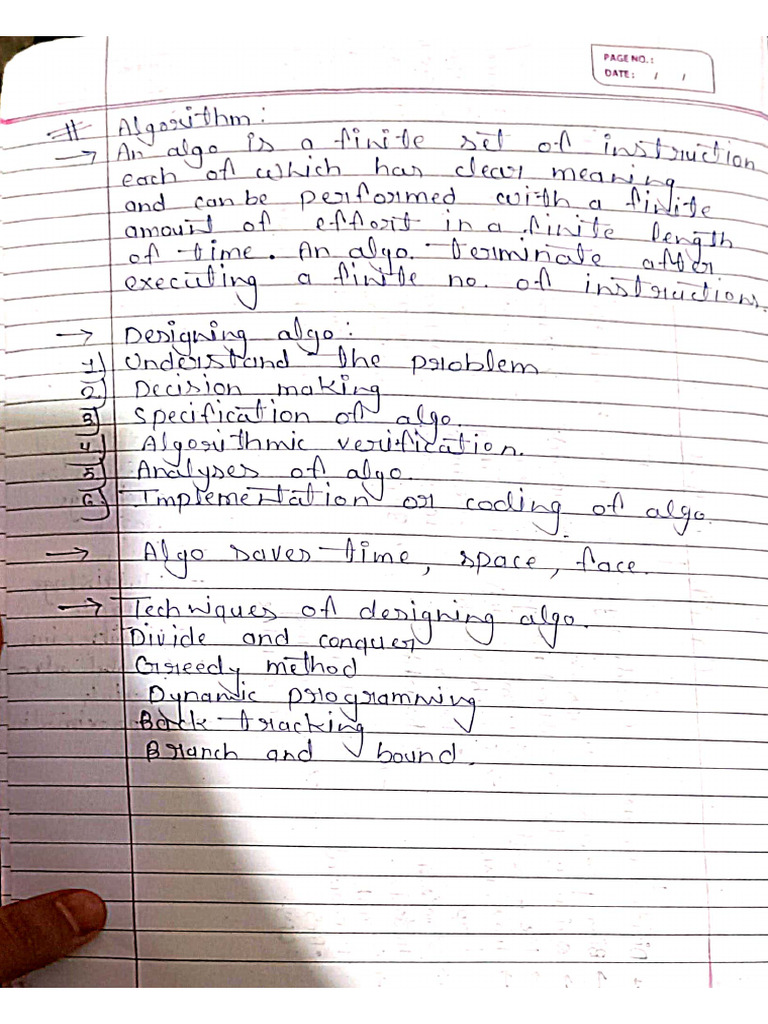 PAGE NO.:
DATE: / /
# Algorithm:
→ An algo is a finite set of instruction
each of which has clear meaning
and can be performed with a finite
amount of effort in a finite length
of time. An algo. terminate after
executing a finite no. of instructions.
→ Designing algo:
1) Understand the problem
2) Decision making
3) Specification of algo.
4) Algorithmic verification.
5) Analyses of algo.
6) Implementation or coding of algo.
→ Algo saves time, space, face.
→ Techniques of designing algo.
Divide and conquer
Greedy method
Dynamic programming
Back tracking
Branch and bound.